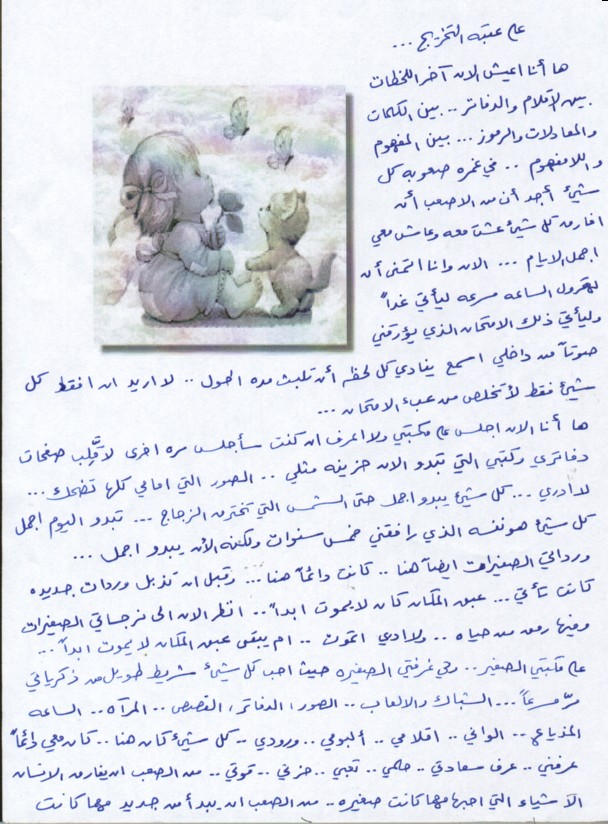 على عتبة التخريج ...
ها أنا اعيش الان آخر اللحظات
بين الاقلام والدفاتر .. بين الكلمات
والمعادلات والرموز ... بين المفهوم
واللامفهوم .. في غمره صعوبه كل
شيئ أجد أن من الاصعب أن
افارق كل شيئ عشت معه وعاش معي
اجمل الايام ... الان وانا اتمنى أن
تهرول الساعه مسرعه ليأتي غداً
وليأتي ذلك الامتحان الذي يؤرقني
صوتاً من داخلي اسمع ينادي كل لحظه أن تلبث مده اطول .. لا اريد ان افقد كل
شيئ فقط لأتخلص من عبء الامتحان ...
ها أنا الان اجلس على مكتبتي ولا اعرف ان كنت سأجلس مره اخرى لأقلّب صفحات
دفاتري وكتبي التي تبدو الان حزينه مثلي .. الصور التي امامي كلها تضحك ...
لا ادري ... كل شيئ يبدو اجمل حتى الشمس التي تخترق الزجاج ... تبدو اليوم اجمل
كل شيئ هو نفسه الذي رافقني خمس سنوات ولكنه الأن يبدو اجمل ...
ورداتي الصغيرات ايضاً هنا .. كانت دائماً هنا ... وقبل ان تذبل وردات جديده
كانت تأتي ... عبق المكان كان لا يموت ابداً .. انظر الان الى نرجساتي الصغيرات
وفيها رمق من حياه .. ولا ادري اتموت .. ام يبقى عبق المكان لا يموت ابداً ...
على مكتبتي الصغير .. وفي غرفتي الصغيره حيث احب كل شيئ شريط طويل من ذكرياتي
مرّ سريعاً ... الشباك والالعاب .. الصور، الدفاتر، القصص .. المرآه .. الساعه
المذياع .. الواني .. اقلامي .. ألبومي .. ورودي .. كل شيئ كان هنا .. كان معي دائماً
عرفني .. عرف سعادتي .. حلمي .. تعبي .. حزني .. قوتي .. من الصعب ان يفارق الانسان
الأشياء التي احبها مهما كانت صغيره .. من الصعب ان يبدأ من جديد مهما كانت